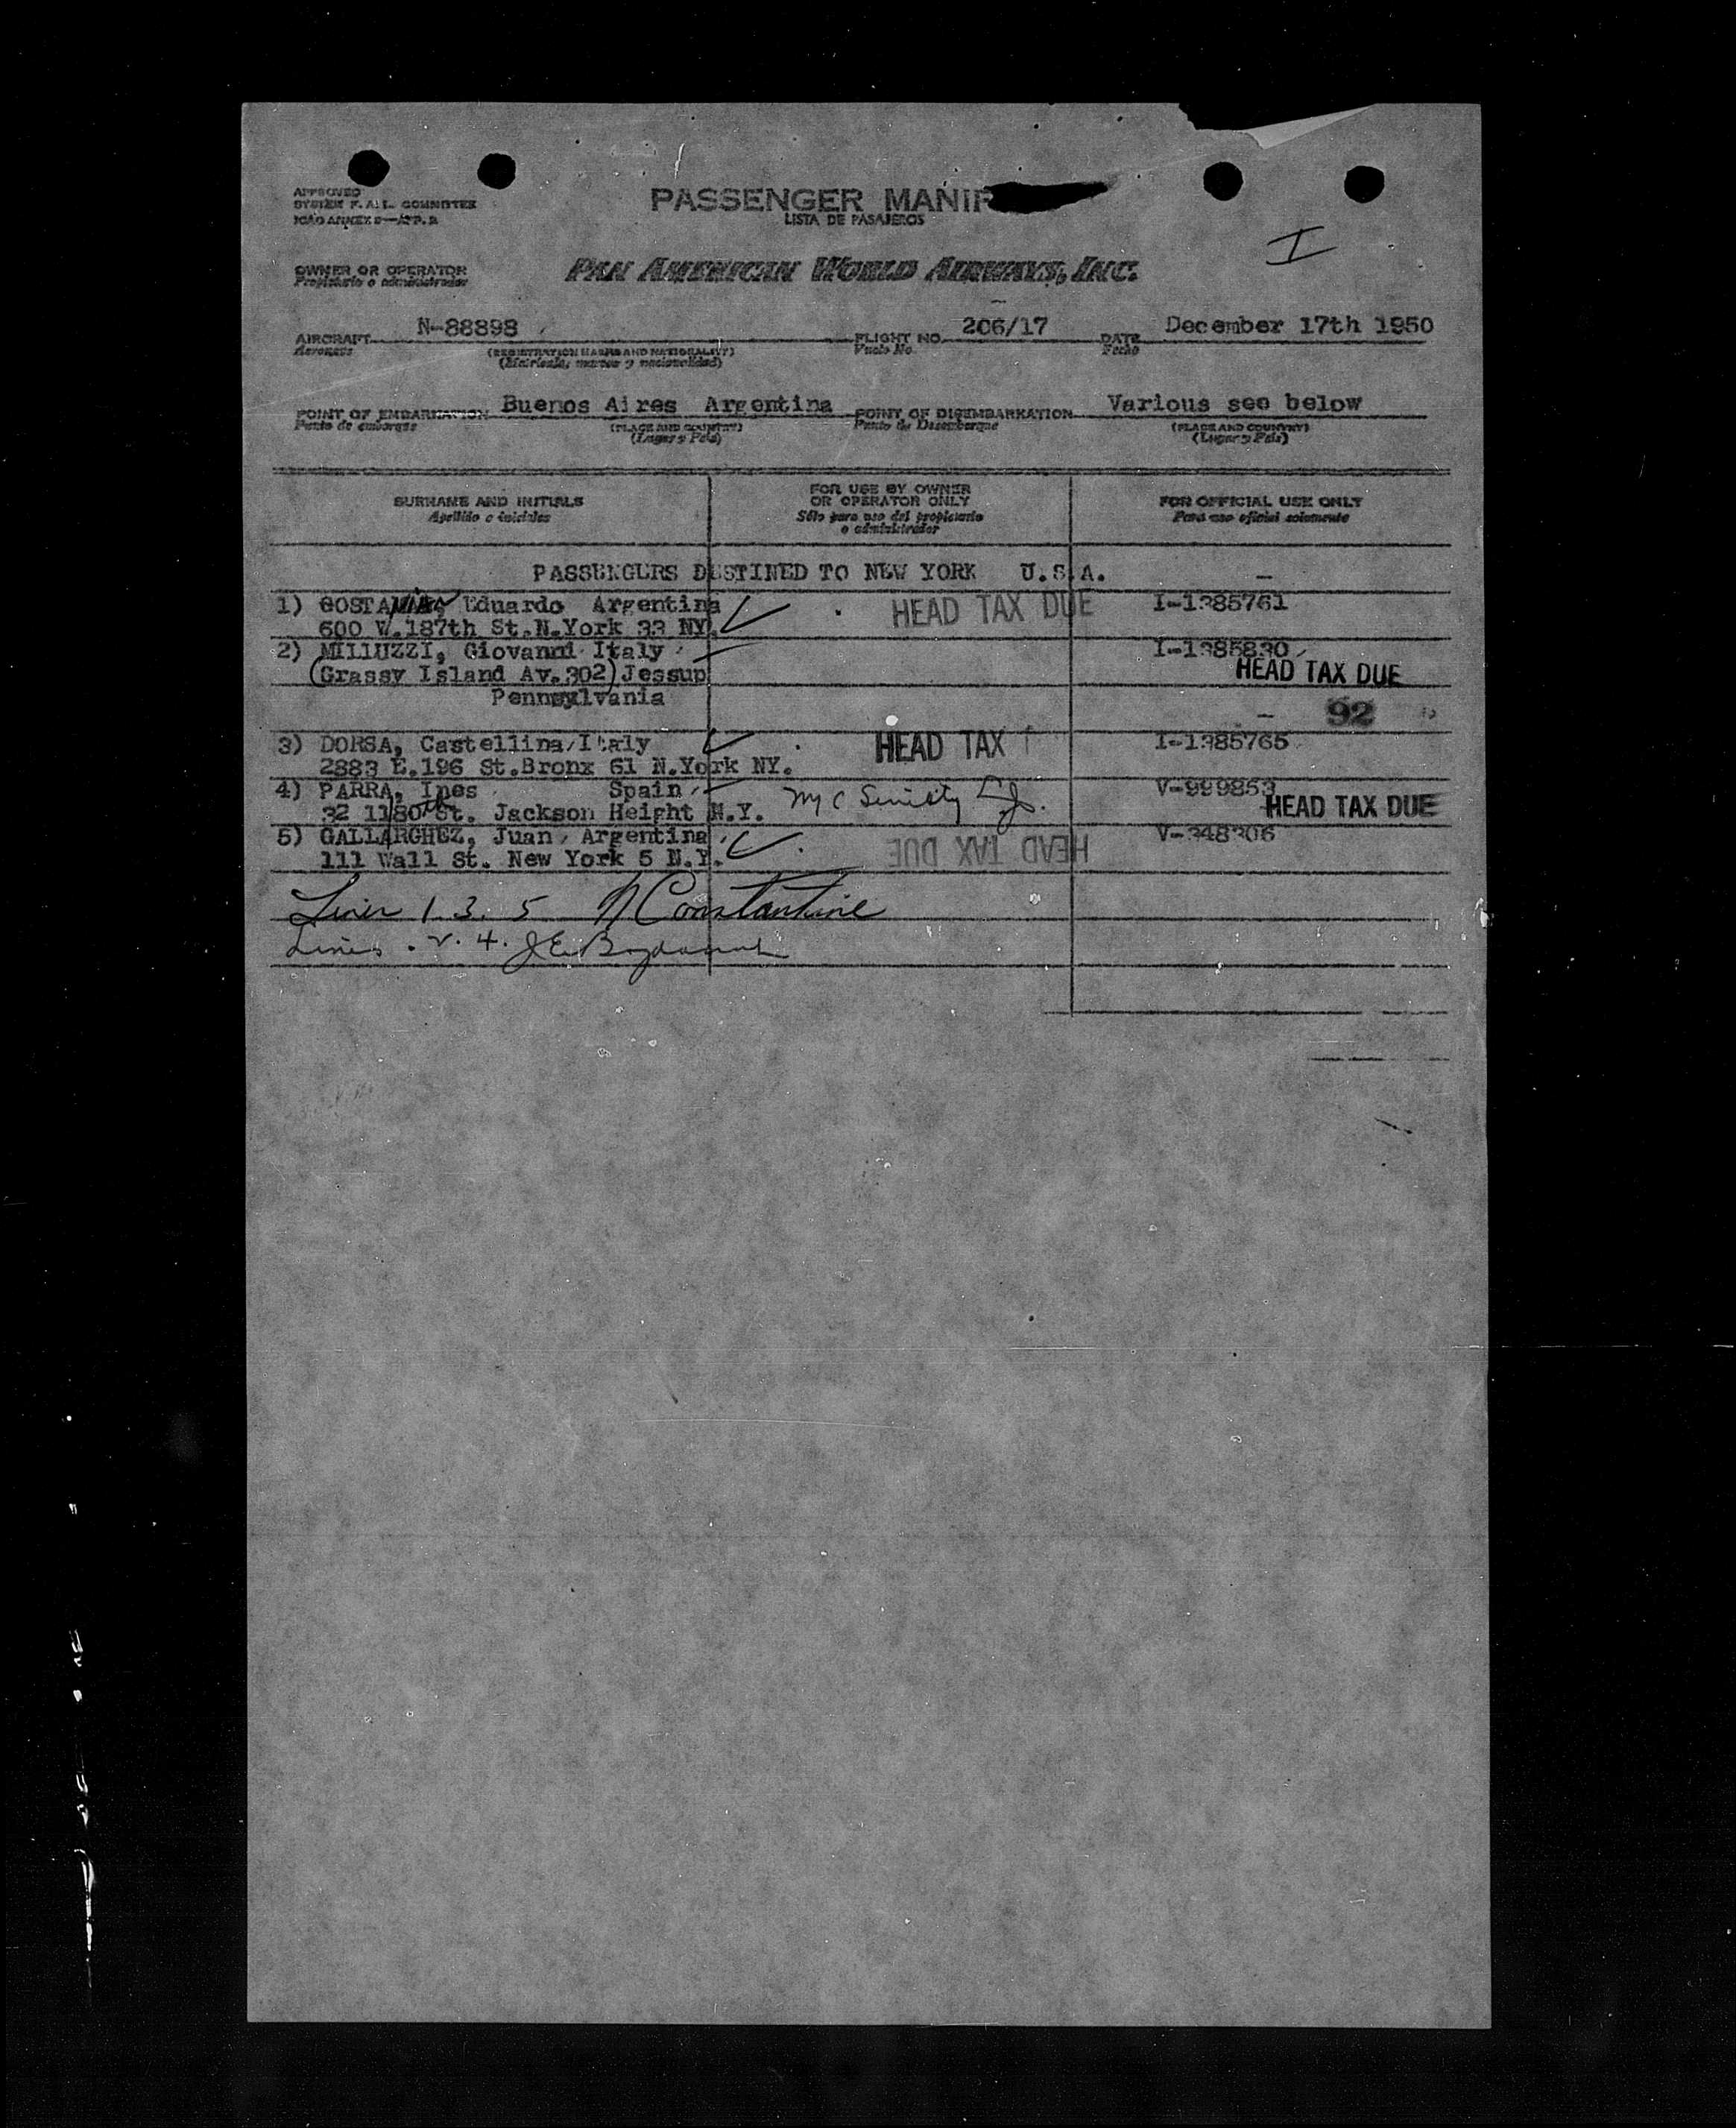 APPROVED
SYSTEM F. A. L. COMMITTEE
ICAO ANNEX 9—APP. 2
PASSENGER MANIF
LISTA DE PASAJEROS
I
OWNER OR OPERATOR
Propietario o administrador
PAN AMERICAN WORLD AIRWAYS, INC.
AIRCRAFT N-88898 FLIGHT NO. 206/17 DATE December 17th 1950
Aeronave (REGISTRATION MARKS AND NATIONALITY) Vuelo No. Fecha
(Matrícula, marcas y nacionalidad)
POINT OF EMBARKATION Buenos Aires Argentina POINT OF DISEMBARKATION Various see below
Punto de embarque (PLACE AND COUNTRY) Punto de Desembarque (PLACE AND COUNTRY)
(Lugar y País) (Lugar y País)
SURNAME AND INITIALS
Apellido e iniciales
FOR USE BY OWNER
OR OPERATOR ONLY
Sólo para uso del propietario
o administrador
FOR OFFICIAL USE ONLY
Para uso oficial solamente
PASSENGERS DESTINED TO NEW YORK U.S.A.
1) Eduardo Argentina HEAD TAX DUE I-1385761
600 W.187th St.N.York 33 NY.
2) MILLUZZI, Giovanni Italy I-1385830
(Grassy Island Av.302)Jessup HEAD TAX DUE
Pennsylvania 92
3) DORSA, Castellina Italy HEAD TAX I-1385765
2883 E.196 St.Bronx 61 N.York NY.
4) PARRA, Ines Spain V-999853
32 11 80th St. Jackson Height N.Y. HEAD TAX DUE
5) GALLARGHEZ, Juan Argentina HEAD TAX DUE V-348306
111 Wall St. New York 5 N.Y.
Lines 1. 3. 5 N Constantine
Lines . 2. 4. J E